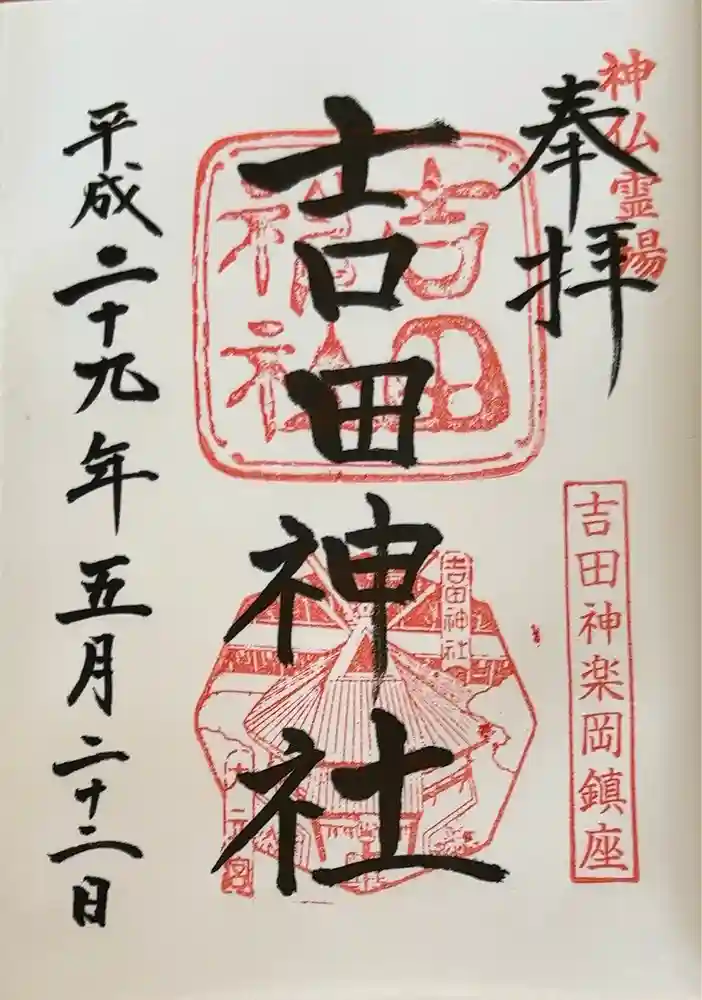 神仏霊場
奉拝
吉田神楽岡鎮座
吉田神社
吉田神社
吉田神社
大元宮
平成二十九年五月二十二日